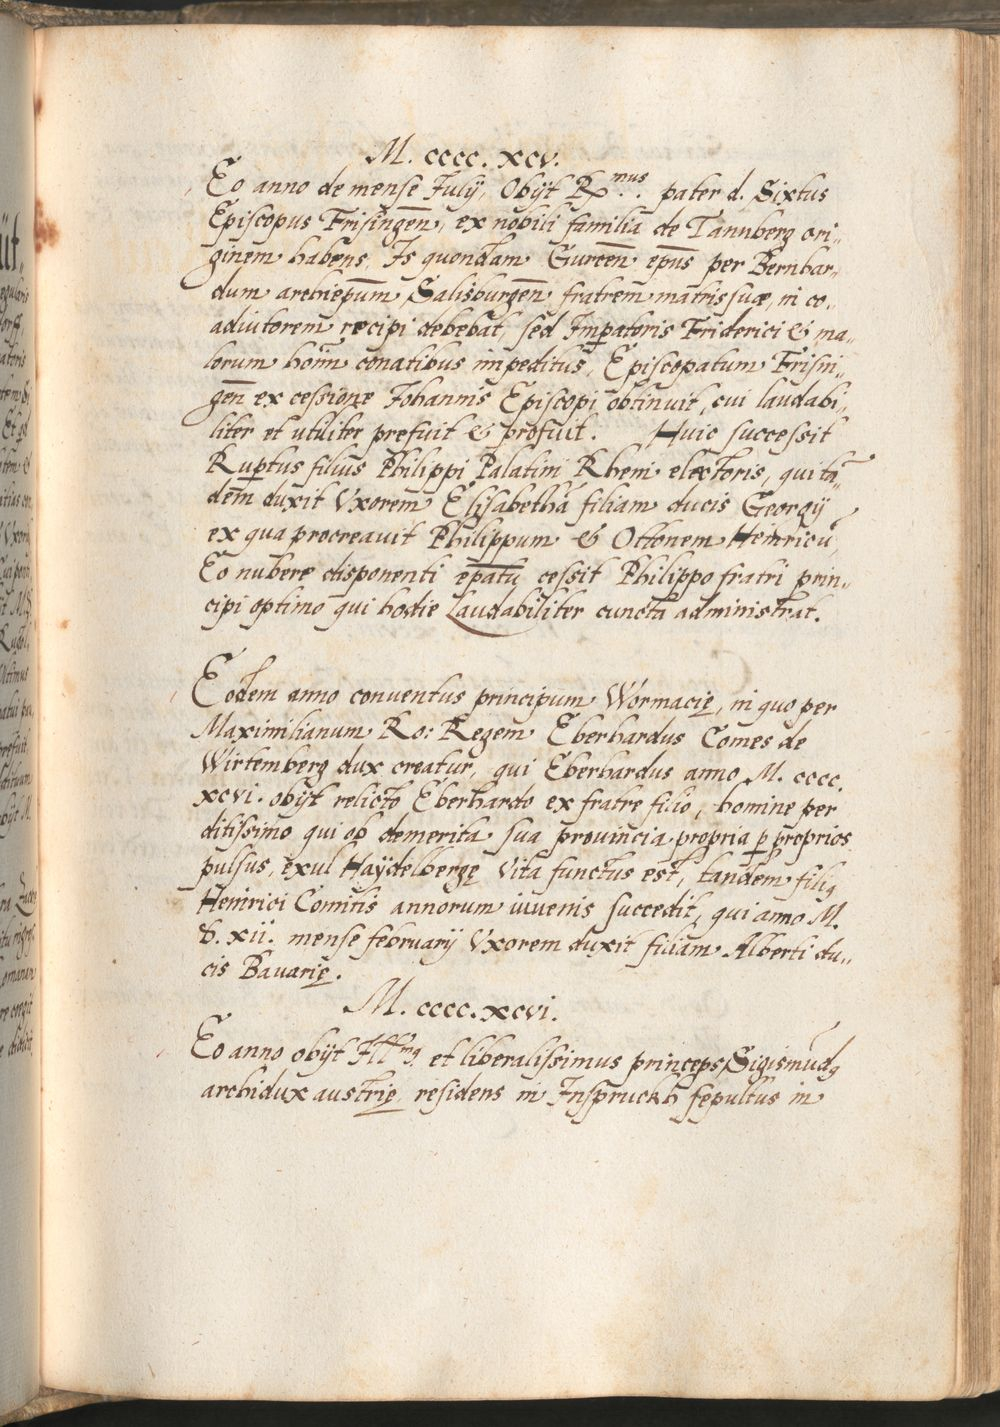 M. cccc. xcv.
Eo anno de mense July, Obijt R.mus pater d. Sixtus
Episcopus Frisingeñ, ex nobili familia de Tannberg ori„
ginem habens, Is quondam Gurceñ ep̄us per Bernhar„
dum archiep̄um Salisburgeñ fratrem matris suæ, in co„
adiutorem recipi debebat, sed Imperatoris Friderici & ma„
lorum hoīm conatibus impeditus, Episcopatum Frisin„
geñ ex cessione Johannis Episcopi obtinuit, cui laudabi„
liter et utiliter prefuit & profuit. Huic successit
Rup̱tus filius Philippi Palatini Rheni electoris, qui tā„
dem duxit Vxorem Elisabethā filiam ducis Georgij
ex qua procreavit Philippum & Ottonem Heinricū,
Eo nubere disponenti ep̄atū cessit Philippo fratri prin„
cipi optimo qui hodie laudabiliter cuncta administrat.
Eodem anno conuentus principum Wormacię, in quo per
Maximilianum Ro: Regem Eberhardus Comes de
Wirtemberg dux creatur, qui Eberhardus anno M. cccc.
xcvi. obijt relicto Eberhardo ex fratre filio, homine per
ditissimo qui ob demerita sua provincia propria ꝑ proprios
pulsus, exul Haÿdelbergę vita functus est, tandem filiꝯ
Heinrici Comitis annorum iuvenis succedit, qui anno M.
d. xii. mense februarij Vxorem duxit filiam Alberti du„
cis Bauarię.
M. cccc. xcvi.
Eo anno obijt Illmꝯ et liberalissimus princeps Sigismūdꝯ
archidux austrię residens in Jnspruckh sepultus in